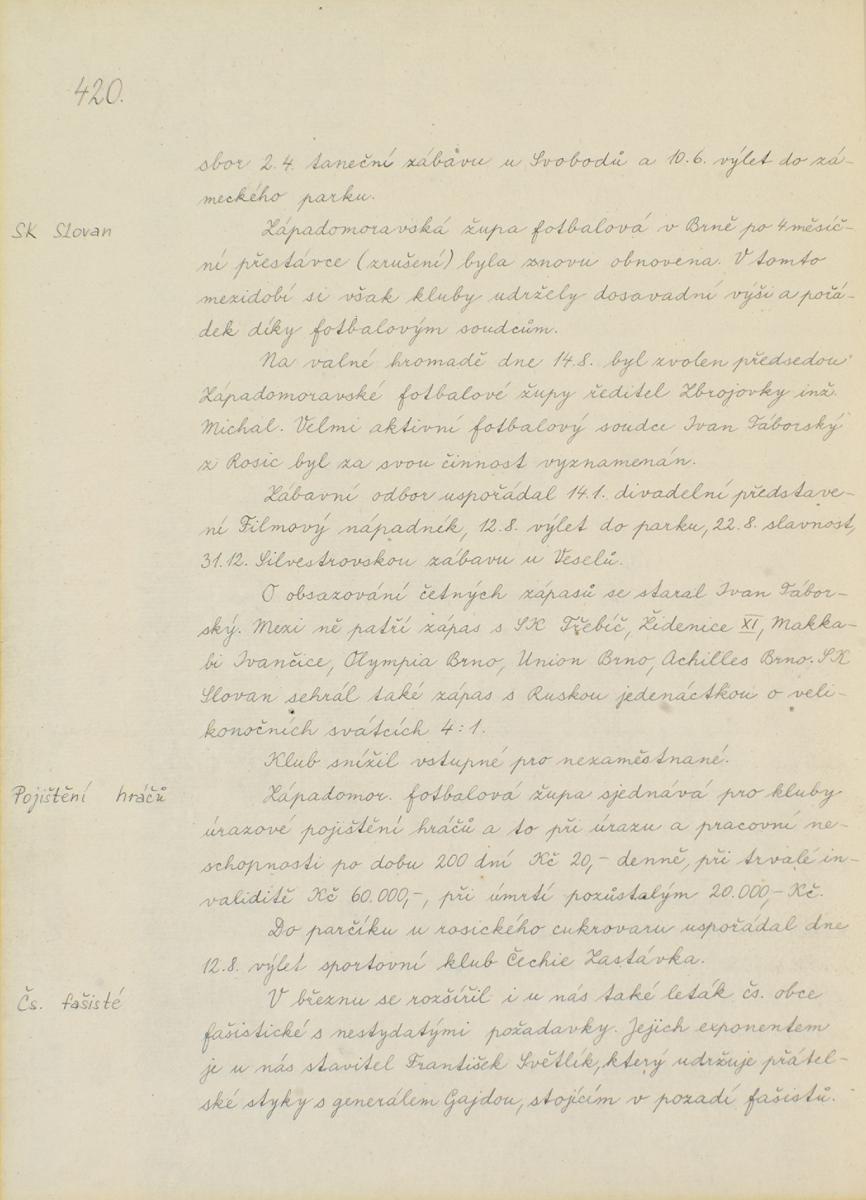 420.
sbor 2.4. taneční zábavu u Svobodů a 10.6. výlet do zá-
meckého parku.
SK Slovan
Západomoravská župa fotbalová v Brně po 4 měsíč-
ní přestávce (zrušení) byla znovu obnovena. V tomto
mezidobí si však kluby udržely dosavadní výši a pořá-
dek díky fotbalovým soudcům.
Na valné hromadě dne 14.8. byl zvolen předsedou
Západomoravské fotbalové župy ředitel Zbrojovky inž.
Michal. Velmi aktivní fotbalový soudce Ivan Táborský
z Rosic byl za svou činnost vyznamenán.
Zábavní odbor uspořádal 14.1. divadelní představe-
ní Filmový nápadník, 12.8. výlet do parku, 22.8. slavnost,
31.12. Silvestrovskou zábavu u Veselů.
O obsazování četných zápasů se staral Ivan Tábor-
ský. Mezi ně patří zápas s SK Třebíč, Židenice XI, Makka-
bi Ivančice, Olympia Brno, Union Brno, Achilles Brno. SK
Slovan sehrál také zápas s Ruskou jedenáctkou o veli-
konočních svátcích 4:1.
Klub snížil vstupné pro nezaměstnané.
Pojištění hráčů
Západomor. fotbalová župa sjednává pro kluby
úrazové pojištění hráčů a to při úrazu a pracovní ne-
schopnosti po dobu 200 dní Kč 20,- denně, při trvalé in-
validitě Kč 60.000,-, při úmrtí pozůstalým 20.000,- Kč.
Do parčíku u rosického cukrovaru uspořádal dne
12.8. výlet sportovní klub Čechie Zastávka.
Čs. fašisté
V březnu se rozšířil i u nás také leták čs. obce
fašistické s nestydatými požadavky. Jejich exponentem
je u nás stavitel František Světlík, který udržuje přátel-
ské styky s generálem Gajdou, stojícím v pozadí fašistů.